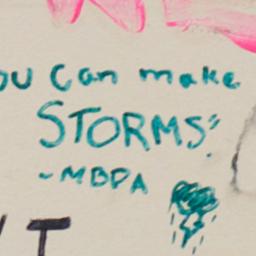 ou can make
STORMS"
-MBDA